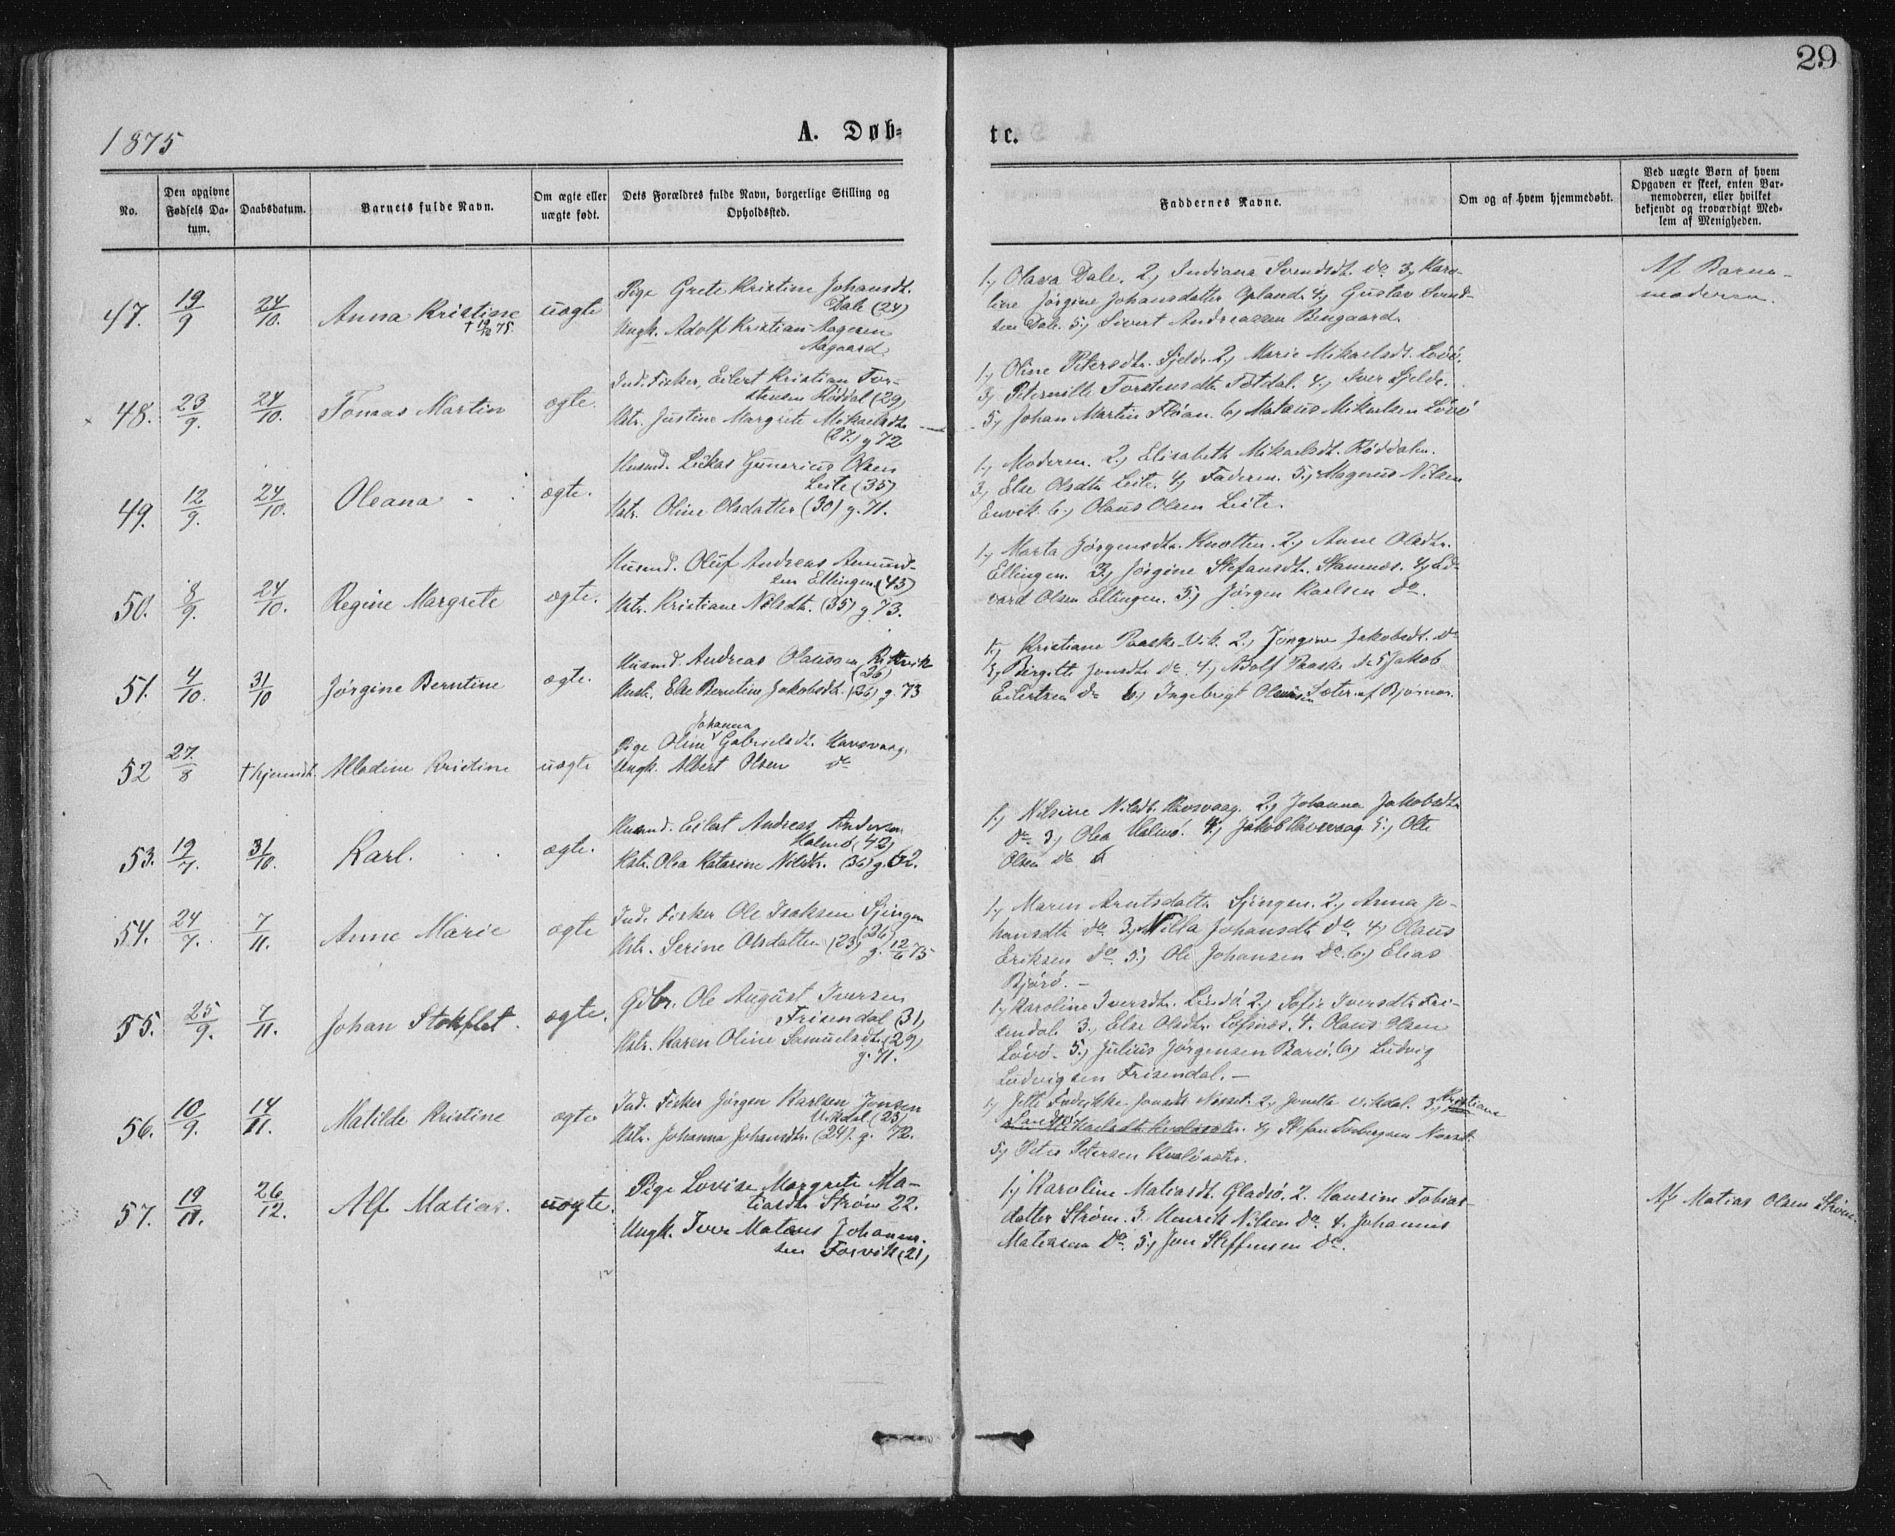 29
1875
A. Døb-
te.
No.
Den opgivne Fødsels Da-
tum.
Daabsdatum.
Barnets fulde Navn.
Om ægte eller
uægte født.
Dets Forældres fulde Navn, borgerlige Stilling og
Opholdssted.
Faddernes Navne.
Om og af hvem hjemmedøbt.
Ved uægte Børn af hvem
Opgaven er skeet, enten Bar-
nemoderen, eller hvilket
bekjendt og troværdigt Med-
lem af Menigheden.
47. 19/9 24/10. Anna Kristine uægte
Pige Grete Kristine Johansdt.
Dale (24)
Ungk. Adolf Kristian Aagesen
Aagaard
1, Olava Dale. 2, Indiana Svendsdt. do 3, Karo-
line Jørgine Johansdatter Opland. 4, Gustav Svend-
sen Dale. 5, Sivert Andreassen Bengaard.
Af Barne-
moderen.
48. 23/9. 24/10. Tomas Martin ægte.
Ind. Fisker, Eilert Kristian Tor-
stensen Røddal (29)
Hstr. Justine Margrete Mikaelsdtr
(27) g 72
1, Oline Petersdtr. 2, Marie Mikaelsdt. Løvø.
3, Torstensdtr. 4, Iver
5, Johan Martin Fløan. 6, Mataus Mikaelsen Løvø
49. 12/9. 24/10. Oleana ægte.
Husmd. Lukas Gunerius Olsen
Leite (35)
Hstr. Oline Olsdatter (30) g. 71.
1, Moderen. 2, Elisabeth Mikaelsdt. Røddalen.
3, Else Olsdtr Leite. 4, Faderen. 5, Magnus Nilsen
6, Olaus Olsen Leite.
50. 8/9. 24/10. Regine Margrete ægte.
Husmd. Oluf Andreas Amund-
sen Ellingen (45)
Hstr. Kristiane Nilsdt. (35) g 73.
1, Marta Jørgensdtr. Knotten. 2, Anne Olsdtr.
Ellingen. 3, Jørgine Stefansdt. Stamnes. 4, Ed-
vard Olsen Ellingen. 5, Jørgen Karlsen do.
51. 4/10. 31/10 Jørgine Berntine ægte.
Husmd. Andreas Olausen
(26)
Hustr. Else Berntine Jakobsdt. (26) g. 73
1, Kristiane Paaske Vik. 2, Jørgine Jakobsdt. do
3, Birgitte Jonsdtr do. 4, Adolf Paaske do 5, Jakob
Eilertsen do 6, Ingebrigt Sæter af Bjørnør.
52 27/8 † hjemdt. Alladine Kristine uægte
Johanna
Pige Oline Gabrielsdt. Havsvaag.
Ungk. Albert Olsen do
53. 19/7. 31/10. Karl. ægte.
Husmd. Eilert Andreas Andersen
Halmø (42)
Hstr. Olea Katarine Nilsdtr. (36) g. 62.
1, Nilsine Nilsdt. Havsvaag. 2, Johanna Jakobsdtr
do 3, Olea Halmø. 4, Jakob Havsvaag 5,
Olsen do
54. 24/7. 7/11. Anne Marie ægte
Ind. Fisker Ole Isaksen Sjingen
(26)
Hstr. Serine Olsdatter (23) g. 12/6 75
1, Maren Arntsdattr Sjingen. 2, Anna Jo-
hansdtr do. 3, Milla Johansdt do. 4, Olaus
Eriksen do. 5, Ole Johansen do. 6, Elias
Bjørø. -
55. 25/9. 7/11. Johan Stokflet. ægte.
Gdbr. Ole August Iversen
Frisendal (31)
Hstr. Karen Oline Samuelsdtr (29)
g. 71.
1, Karoline Iversdtr. Lindø 2, Sofie Iversdtr. Fri-
sendal. 3, Else Olsdtr. 4. Olaus Olsen
Løvø. 5, Julius Jørgensen Barø. 6, Ludvig
Ludvigsen Frisendal. -
56. 10/9. 14/11. Matilde Kristine ægte
Ind. Fisker Jørgen Karlsen Jonsen
Vikdal (25)
Hstr. Johanna Johansdtr. (24). g. 72.
2, Vikdal. 3, Kristiane
4, Stefan
5, Peter Petersen
57. 19/11. 26/12. Alf Matias. uægte.
Pige Lovise Margrete Ma-
tiasdtr Strøm 22.
Ungk. Iver Mataus Johannes-
sen Forvik (21)
1, Karoline Matiasdt. Gladsø. 2. Hansine Tobias-
datter Strøm. 3. Henrik Nilsen do. 4. Johannes
Matiasen do. 5, Jon Steffensen do.
Af Matias Olsen Strøm.